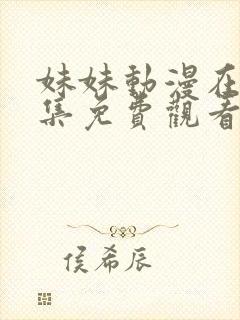 妹妹動漫在
集免費觀看
侯希辰